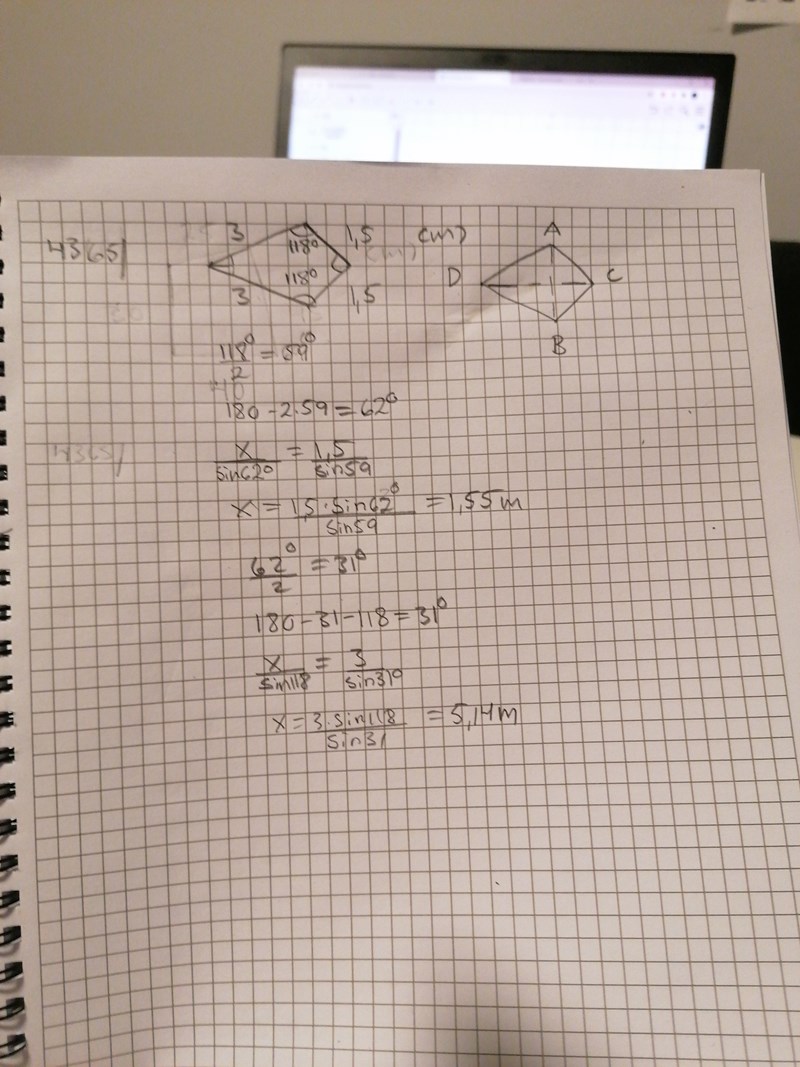 4365/
3 1,5 (m)
118°
118°
3 1,5
A
D C
B
118°/2 = 59°
180 - 2·59 = 62°
x/sin62° = 1,5/sin59
x = 1,5·sin62°/sin59 = 1,55m
62°/2 = 31°
180 - 31 - 118 = 31°
x/sin118 = 3/sin31°
x = 3·sin118/sin31 = 5,14m